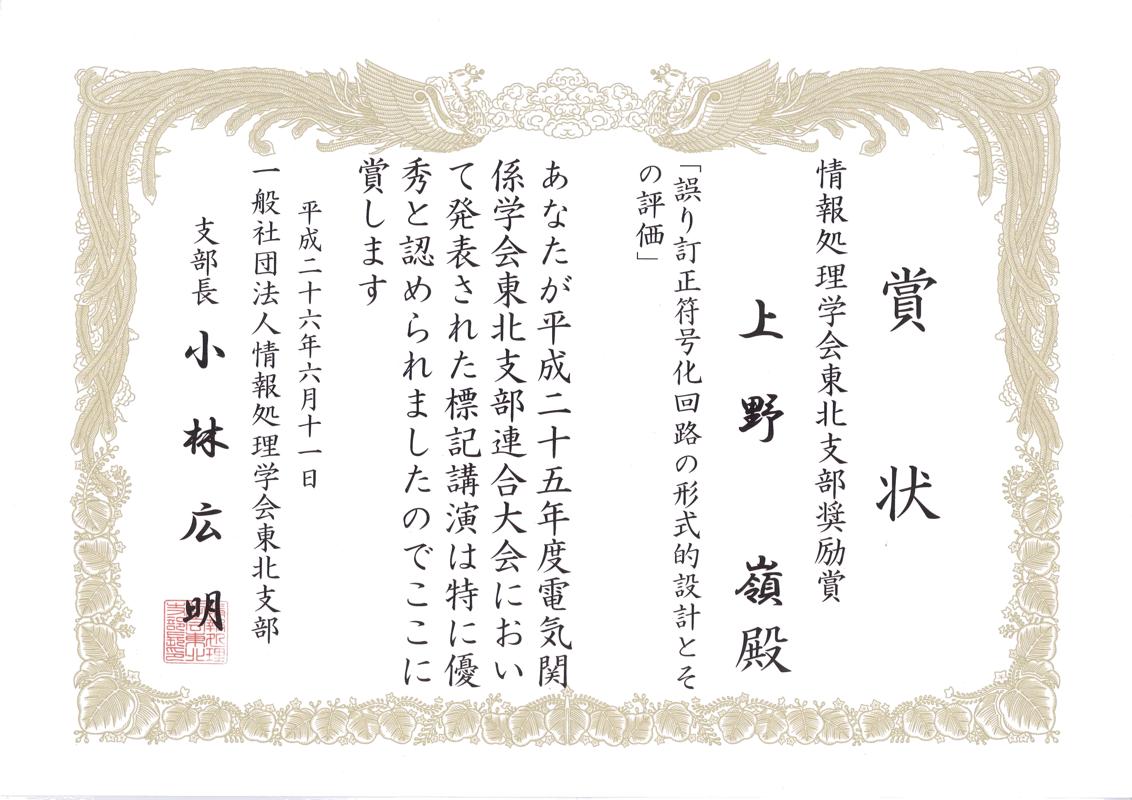 賞状
情報処理学会東北支部奨励賞
上野 嶺殿
「誤り訂正符号化回路の形式的設計とそ
の評価」
あなたが平成二十五年度電気関
係学会東北支部連合大会におい
て発表された標記講演は特に優
秀と認められましたのでここに
賞します
平成二十六年六月十一日
一般社団法人情報処理学会東北支部
支部長 小林広明